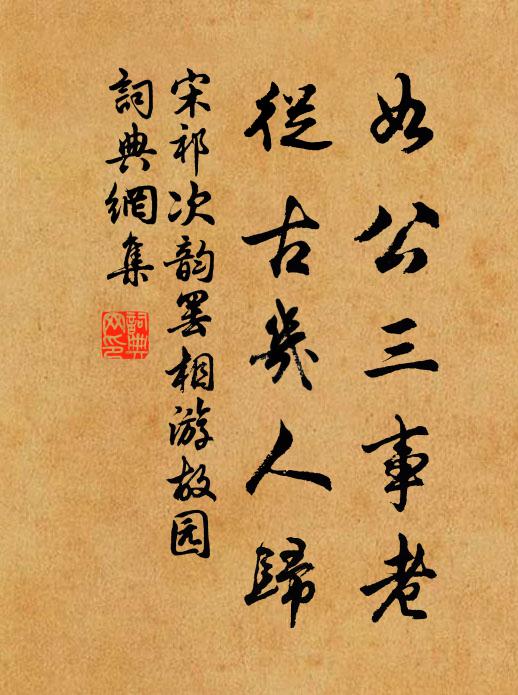 如公三事老
從古幾人歸
宋祁次韵罢相游故园
詞典網集
詞典